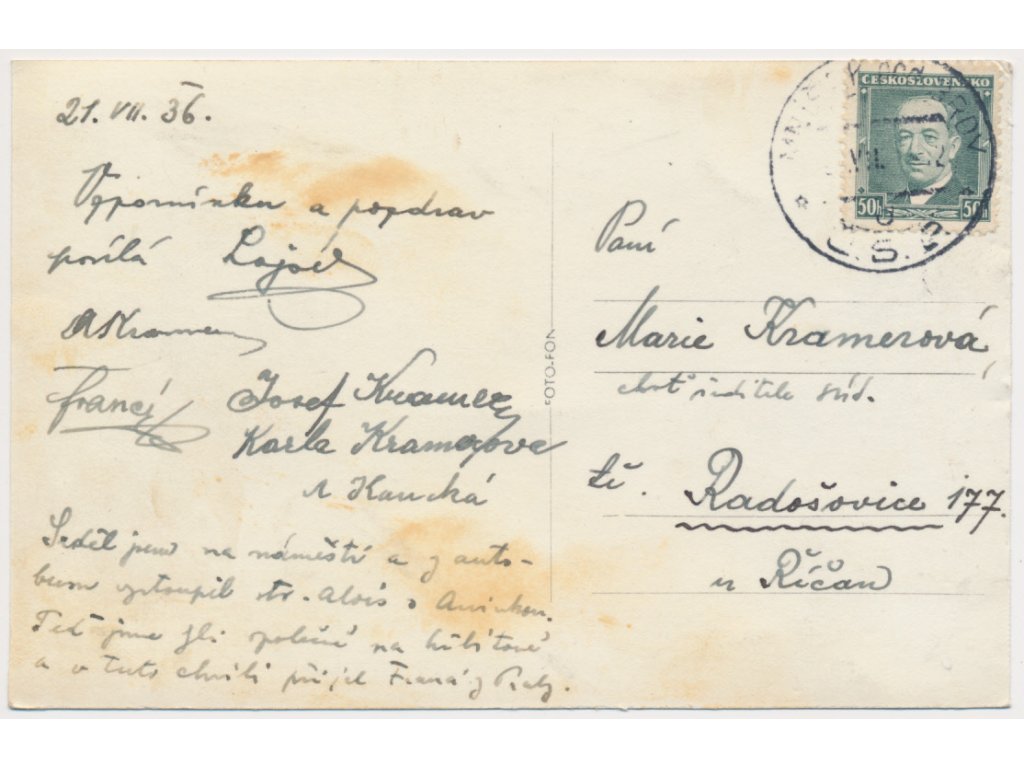 21. VII. 36.
Vzpomínku a pozdrav
posílá Lojzík
AKramer
Francij
Josef Kramer
Karla Kramerova
A Haucká
Seděl jsem na náměstí a z auto-
busu vystoupil str. Alois s Aninkou.
Teď jsme šli společně na hřbitově
a v tuto chvíli přijel Franc z Prahy.
FOTO-FON
ČESKOSLOVENSKO
50h 50h
Č.S.R.
Paní
Marie Kramerová,
choť ředitele
tč. Radošovice 177.
u Říčan